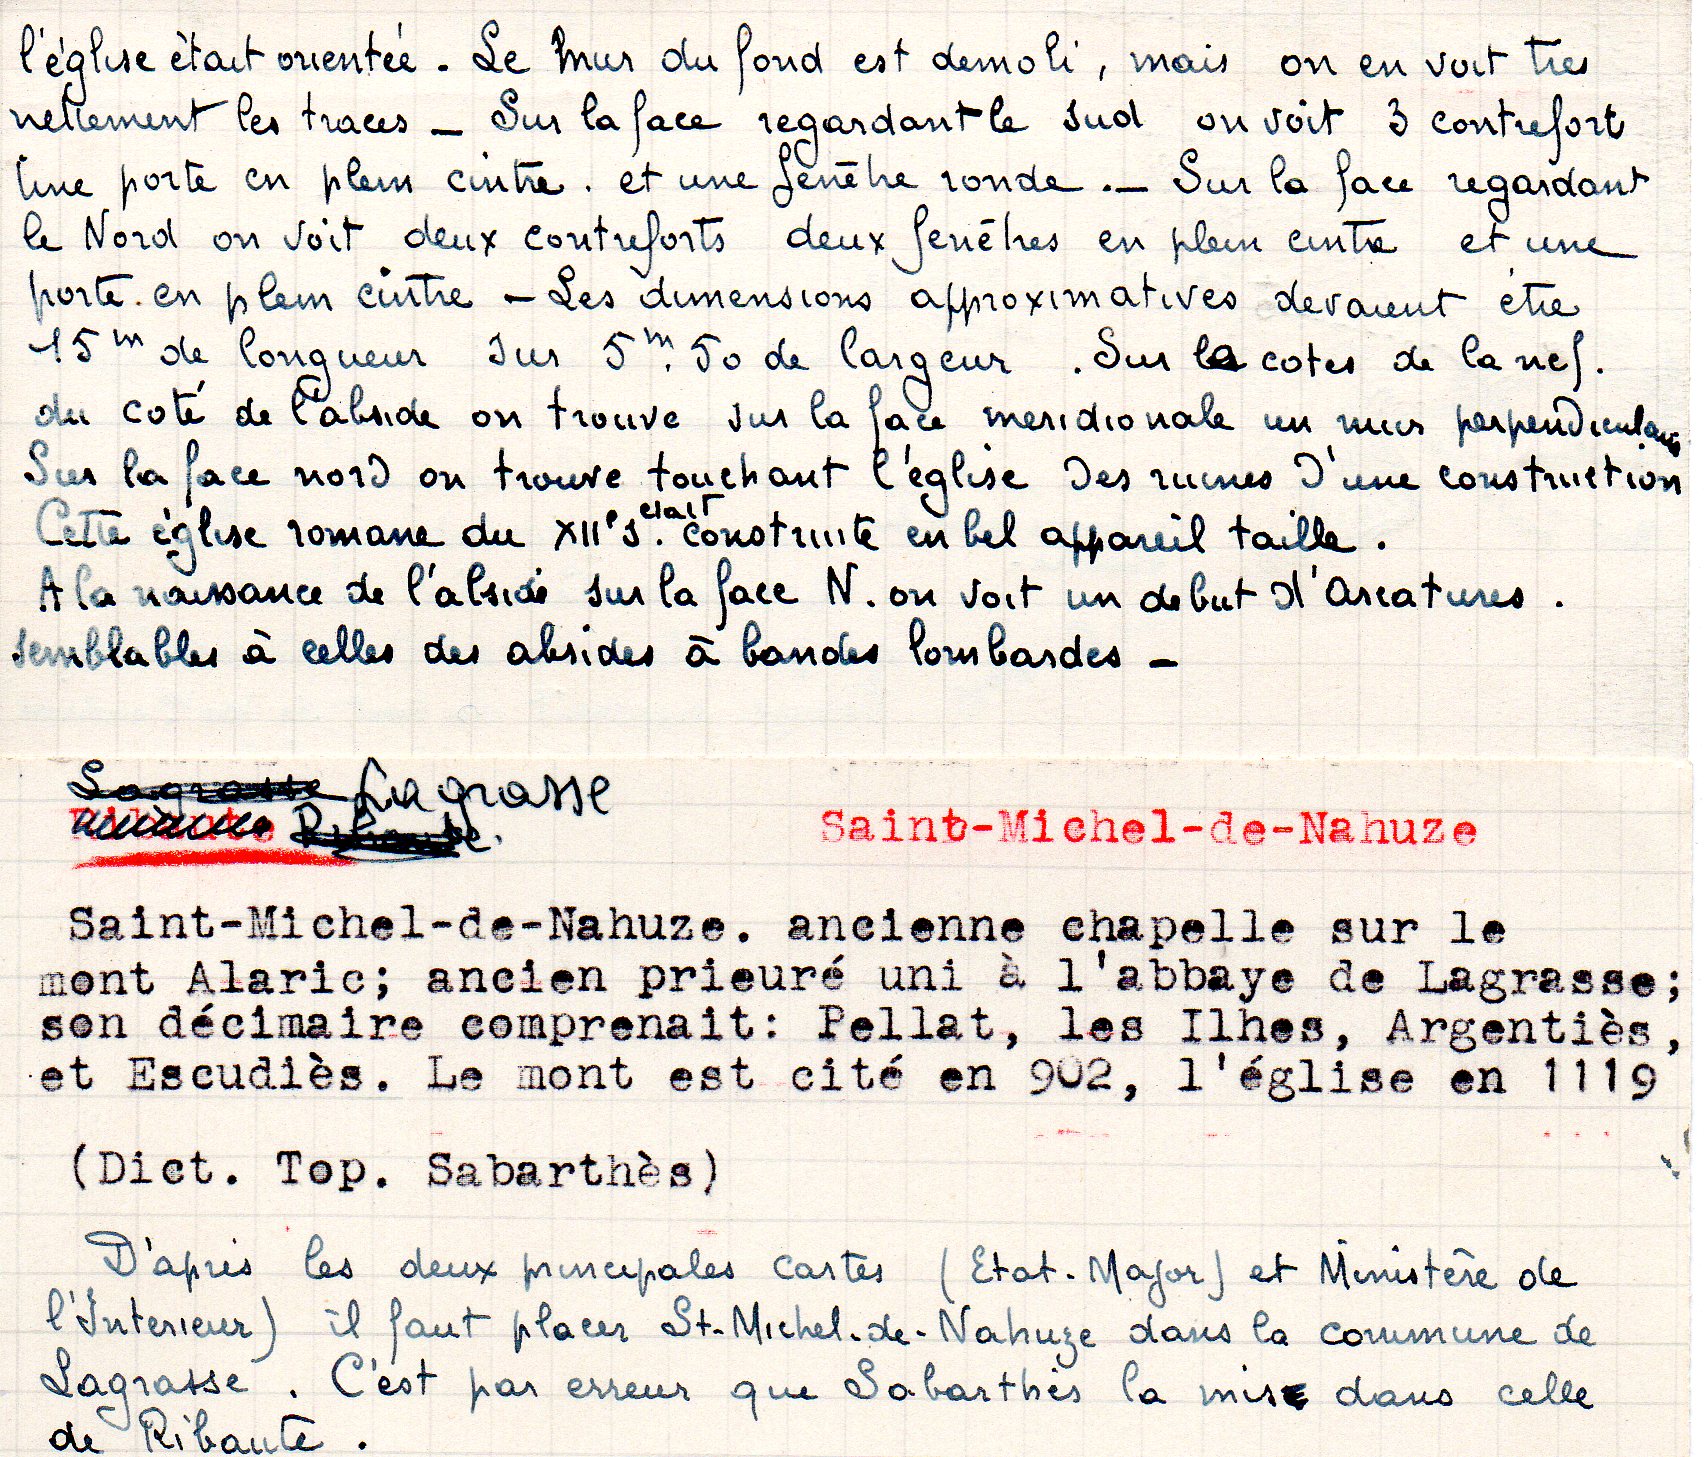 l'église était orientée. Le mur du fond est demoli, mais on en voit tres
nettement les traces – Sur la face regardant le sud on voit 3 contrefort
une porte en plein cintre. et une fenêtre ronde. – Sur la face regardant
le Nord on voit deux contreforts deux fenêtres en plein cintre et une
porte en plein cintre – Les dimensions approximatives devaient être
15m de longueur sur 5m.50 de largeur. Sur les cotes de la nef.
du coté de l'abside on trouve sur la face meridionale un mur perpendiculaire
Sur la face nord on trouve touchant l'église des ruines d'une construction
Cette église romane du XIIe s. etait construite en bel appareil taille.
A la naissance de l'abside sur la face N. on voit un debut d'Arcatures.
semblables à celles des absides à bandes lombardes –
Lagrasse Lagrasse
Ribaute.
Saint-Michel-de-Nahuze
Saint-Michel-de-Nahuze. ancienne chapelle sur le
mont Alaric; ancien prieuré uni à l'abbaye de Lagrasse;
son décimaire comprenait: Pellat, les Ilhes, Argentiès,
et Escudiès. Le mont est cité en 902, l'église en 1119
(Dict. Top. Sabarthès)
D'apres les deux principales cartes (Etat-Major) et Ministère de
l'Interieur) il faut placer St-Michel-de-Nahuze dans la commune de
Lagrasse. C'est par erreur que Sabarthès la mise dans celle
de Ribaute.